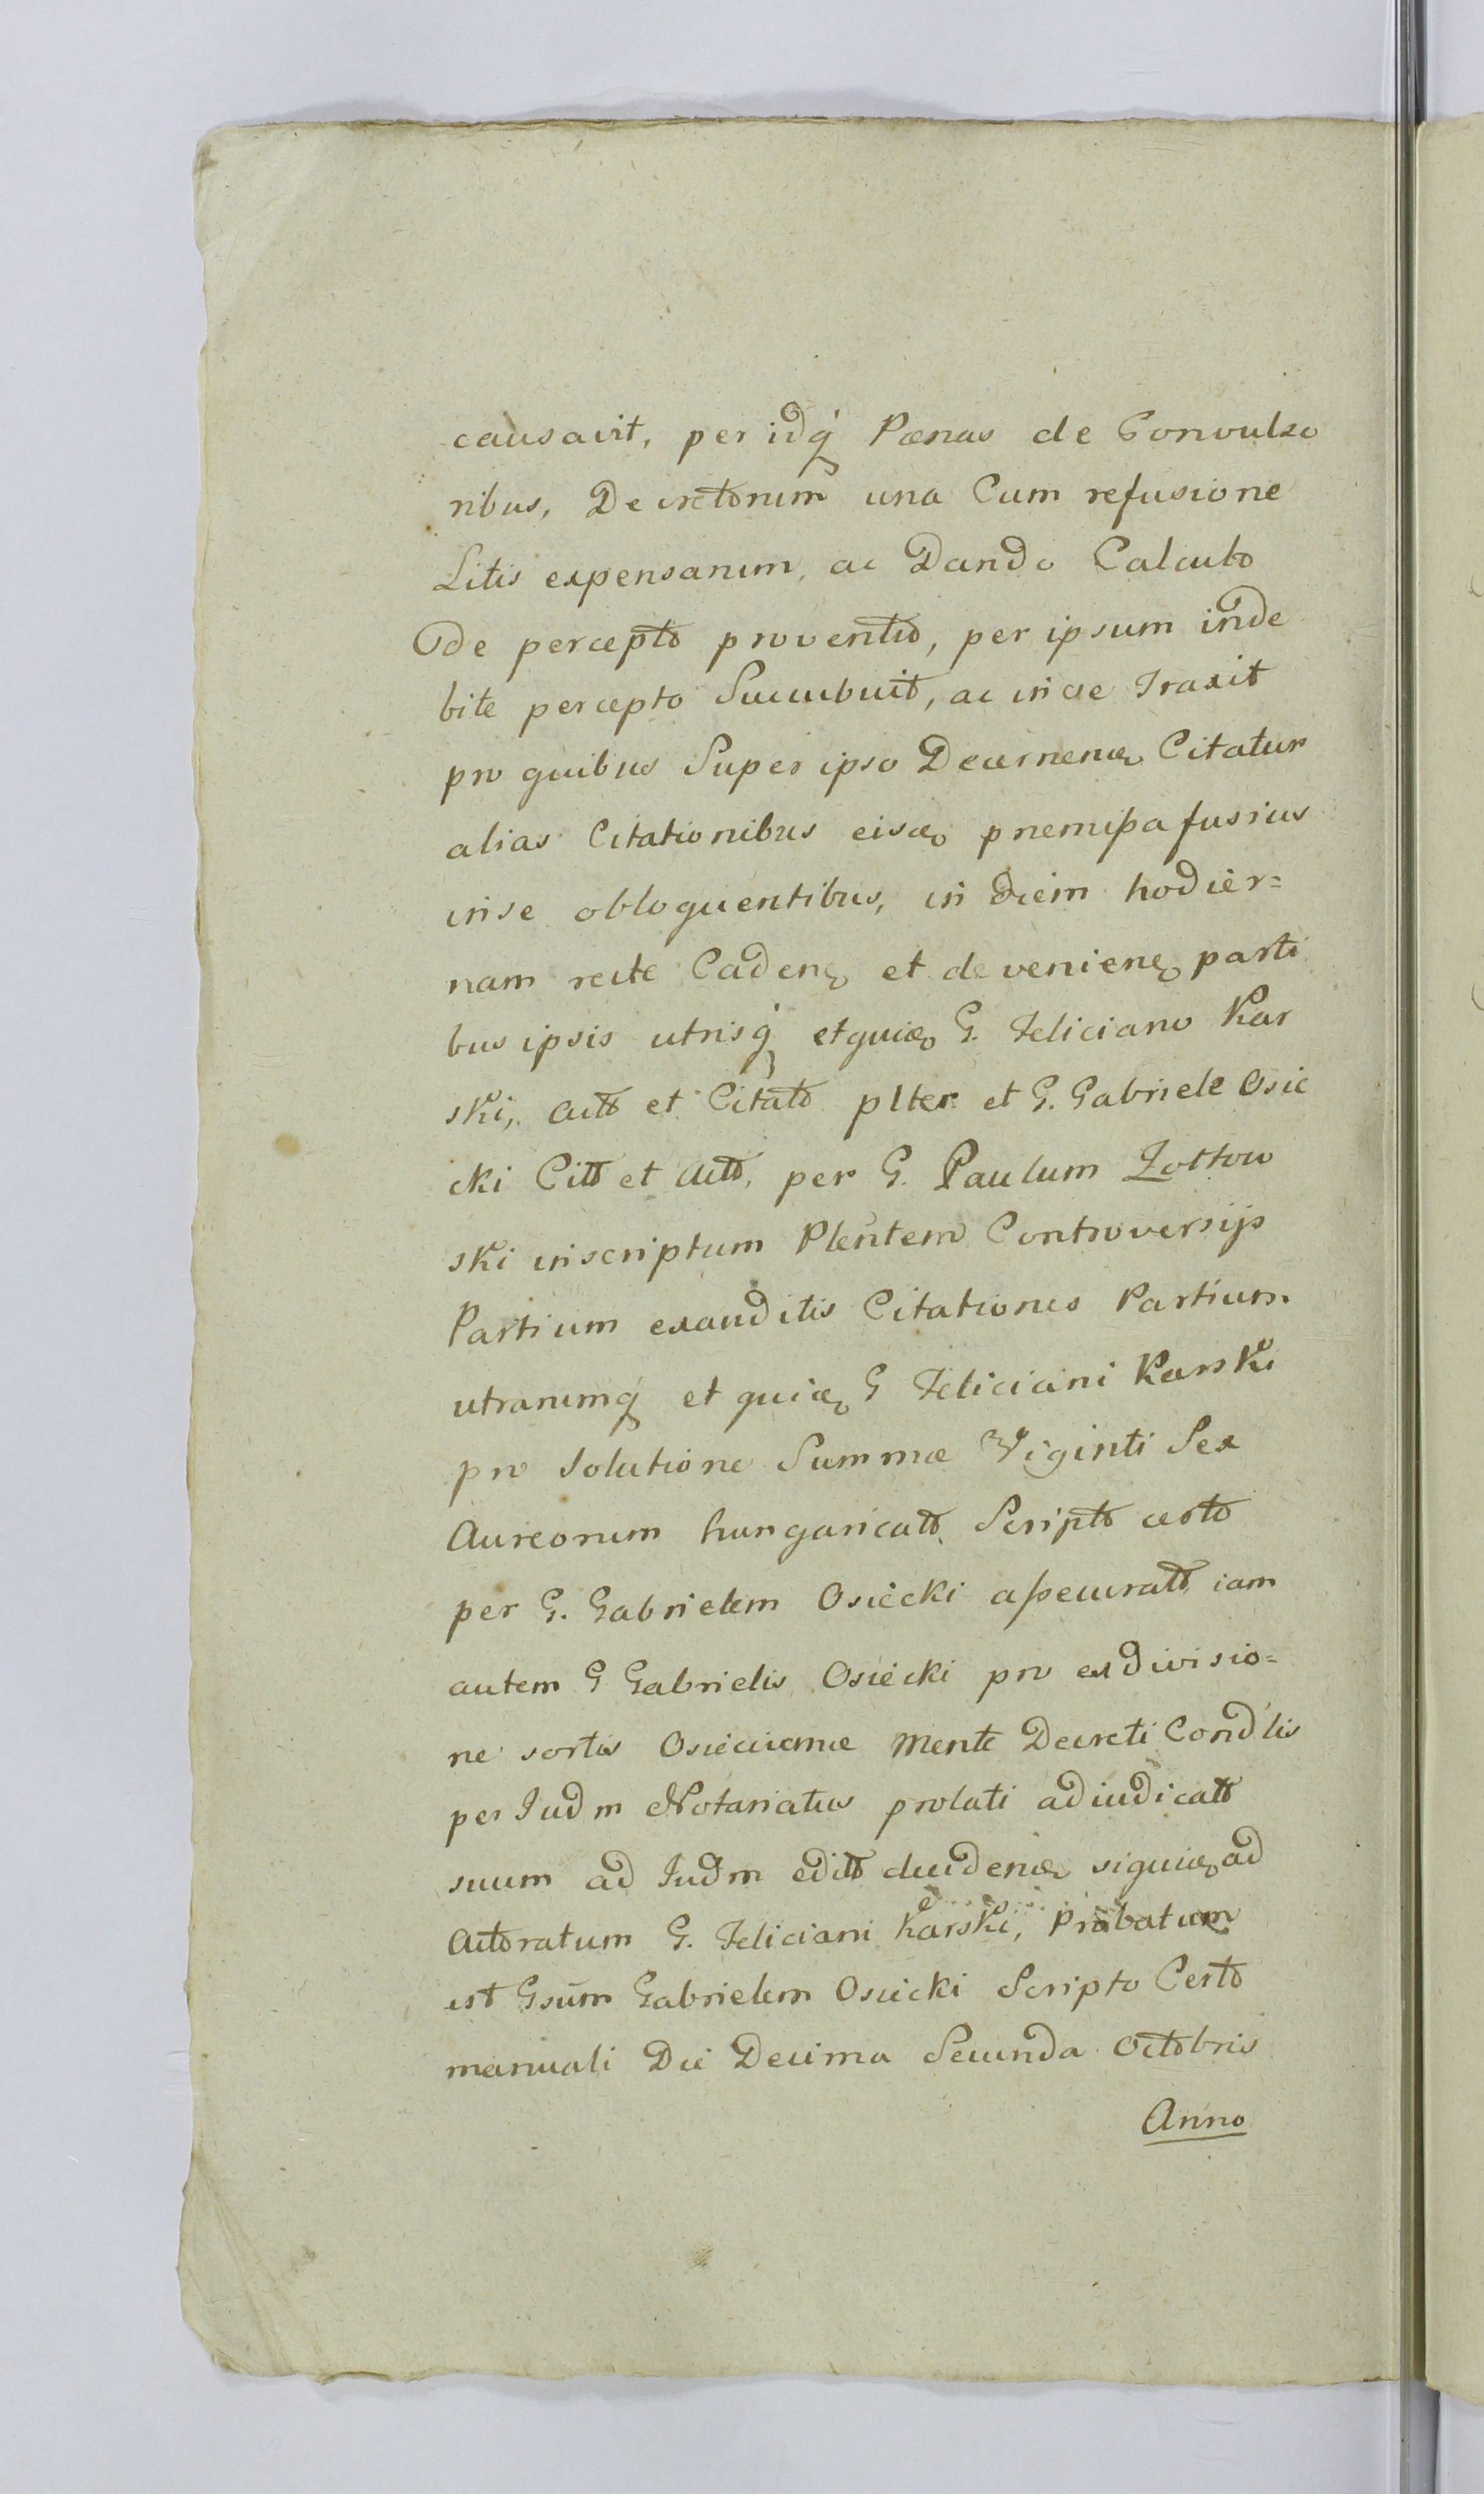 causavit, per idq́ Pœnas de Convulso
ribus, Decretorum una Cum refusione
Litis expensarum, ac Dando Calculo
de percepto proventu, per ipsum inde
bite percepto Succubuit, ac in se Traxit
pro quibus Super ipso Decernen Citatur
alias Citationibus eisq, premissa fusius
in se obloquentibus, in Diem hodier=
nam recte Caden, et devenien, parti
bus ipsis utrisq́ et quiq, G. Feliciano Kar
ski, Actt et Citato plter et G. Gabriele Osie
cki Citt et Actt, per G. Paulum Zottow
ski inscriptum Plentem Controversijs
Partium exauditis Citationes Partium
utrarumq́ et quiq, G Feliciani Karski
pro solutione Summæ Viginti Sex
Aureorum hungaricatt Scripto certo
per G. Gabrielem Osiecki assecuratt, iam
autem G Gabrielis Osiecki pro exdivisio=
ne sortis Osieccianæ mente Decreti Condlis
per Judm Notariatus prolati adiudicatt
suum ad Judm editt siquiq, ad
Actoratum G. Feliciani Karski, Probatum
est Gsum Gabrielem Osiecki Scripto Certo
manuali Die Decima Secunda Octobris
Anno